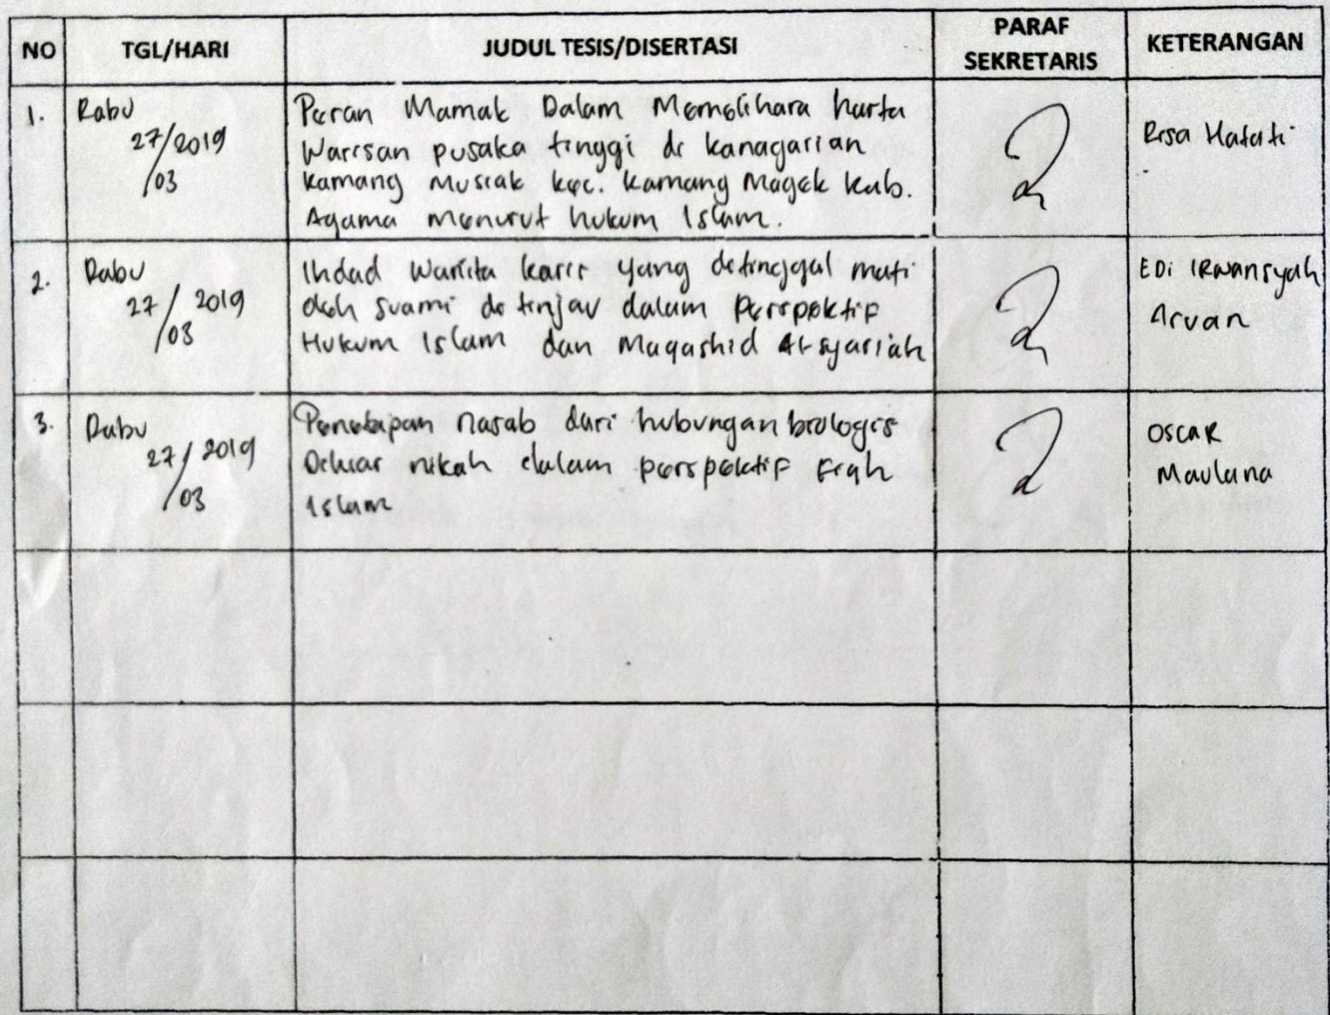 NO TGL/HARI JUDUL TESIS/DISERTASI PARAF SEKRETARIS KETERANGAN
1. Rabu 27/03/2019
Peran Mamak Dalam Memelihara harta
Warisan pusaka tinggi di kanagarian
kamang Musiak kec. kamang Magek kab.
Agama menurut hukum Islam.
Risa Hafati
2. Rabu 27/03/2019
Ihdad Wanita karir yang ditinggal mati
oleh suami di tinjau dalam Perspektif
Hukum Islam dan Maqashid Al-syariah
EDi IRwansyah
Arvan
3. Rabu 27/03/2019
Penetapan nasab dari hubungan biologis
Diluar nikah dalam perspektif Fiqh
Islam
OSCAR
Maulana